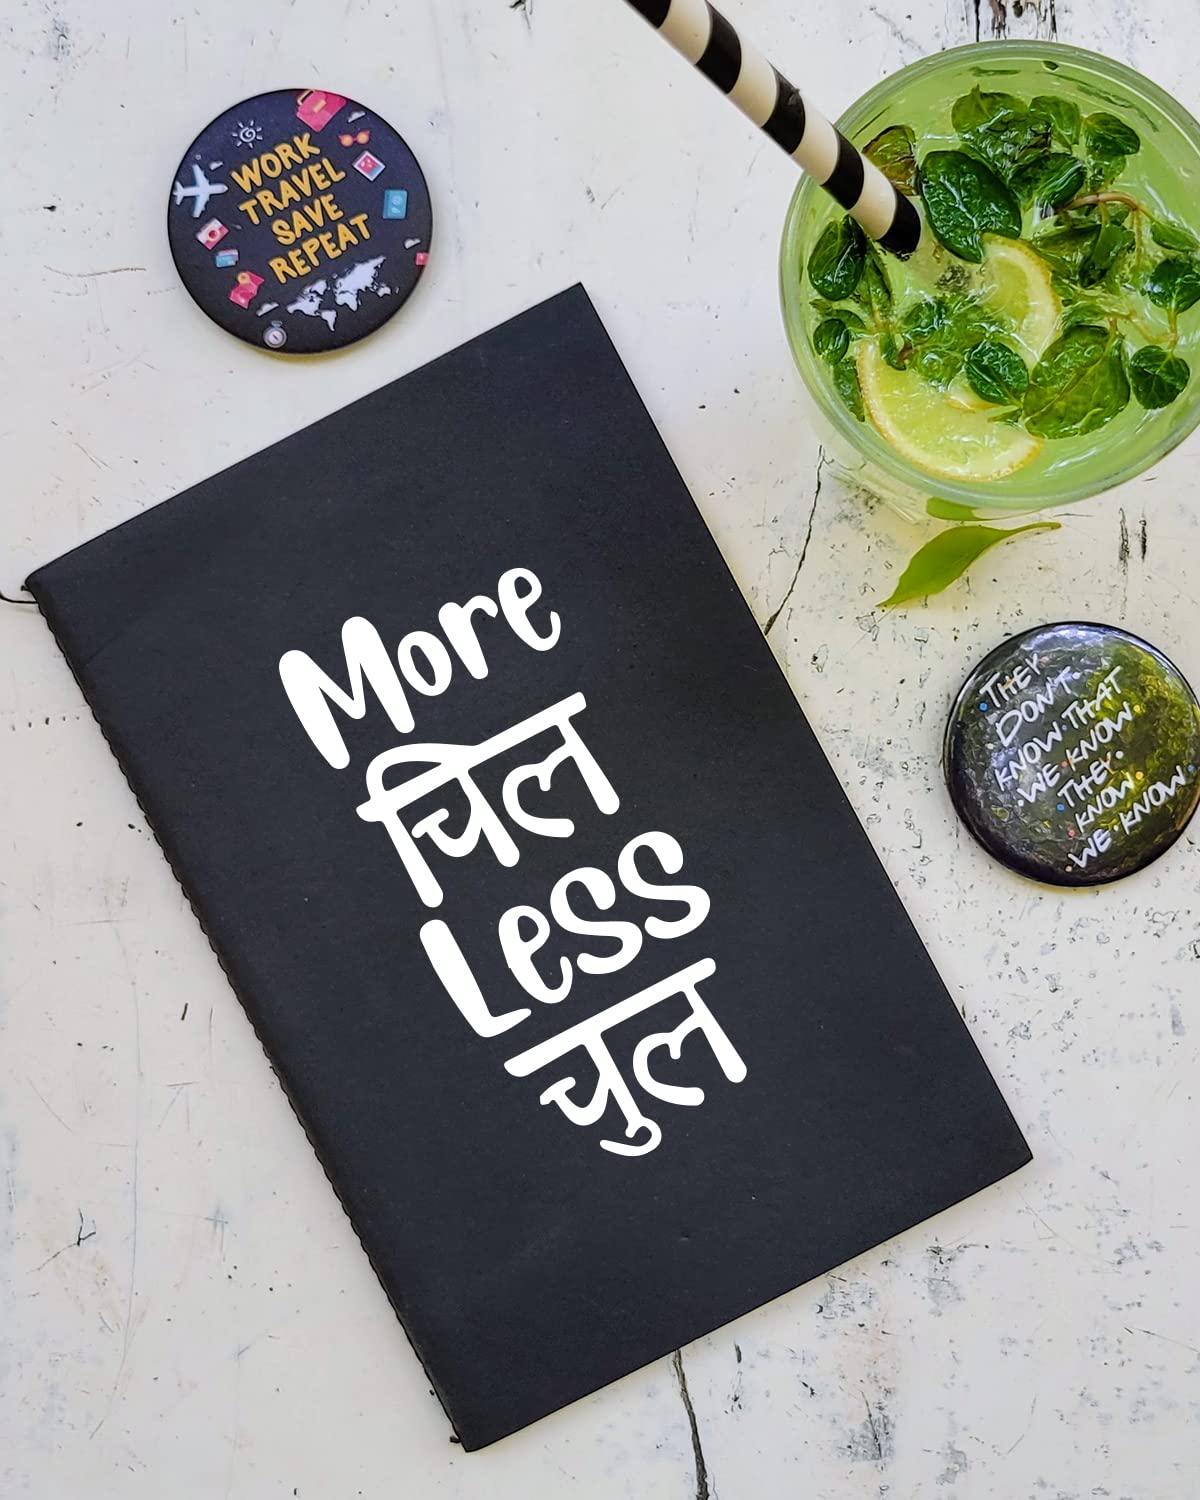 WORK
TRAVEL
SAVE
REPEAT
More
चिल
Less
चुल
THEY
DON'T
KNOW THAT
WE KNOW
THEY
KNOW
WE KNOW